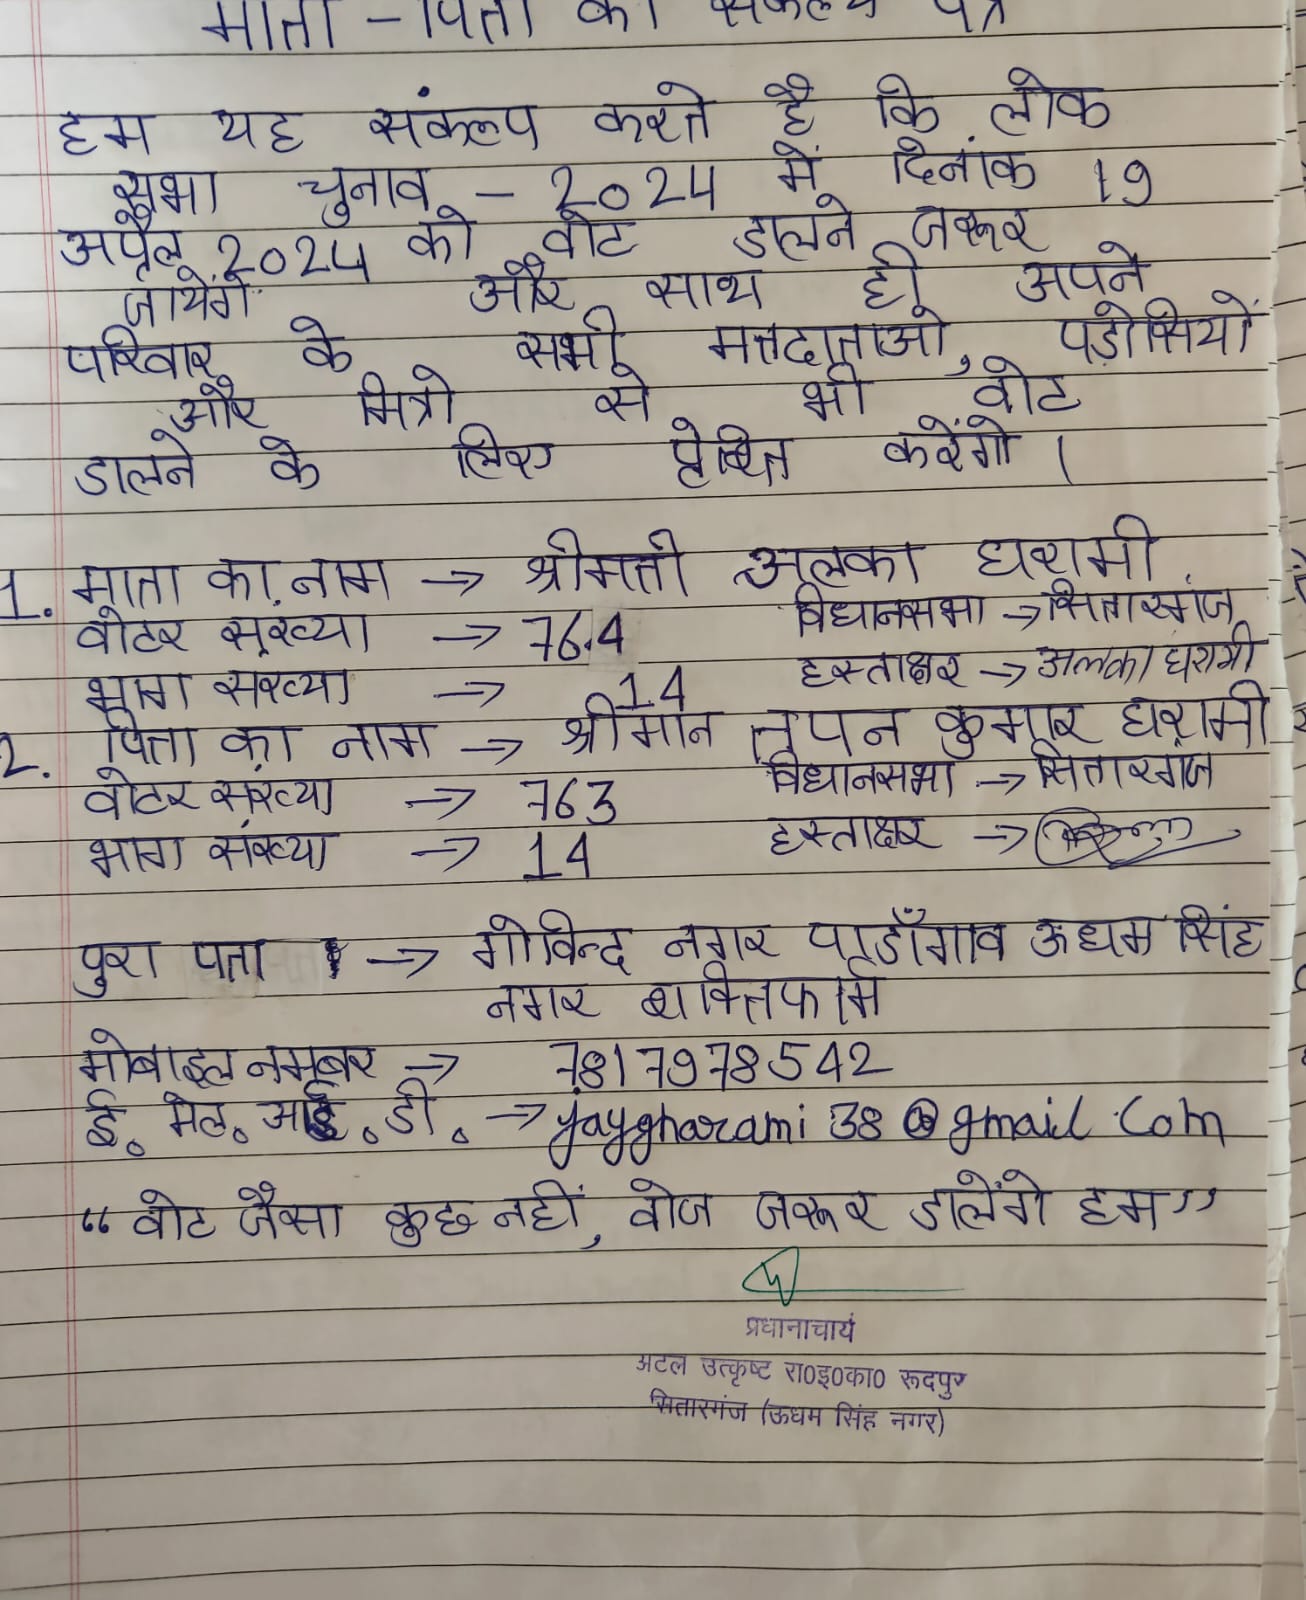 माता - पिता का संकल्प पत्र
हम यह संकल्प करते है कि लोक
सभा चुनाव - 2024 में दिनांक 19
अप्रैल 2024 को वोट डालने जरूर
जायेंगे और साथ ही अपने
परिवार के सभी मतदाताओ, पड़ोसियों
और मित्रो से भी वोट
डालने के लिए प्रेरित करेंगे ।
1. माता का नाम → श्रीमती अलका घरामी
वोटर संख्या → 764 विधानसभा → सितारगंज
भाग संख्या → 14 हस्ताक्षर → अलका घरामी
2. पिता का नाम → श्रीमान तपन कुमार घरामी
वोटर संख्या → 763 विधानसभा → सितारगंज
भाग संख्या → 14 हस्ताक्षर →
पुरा पता → गोविन्द नगर पाड़ाँगाव ऊधम सिंह
नगर शक्तिफार्म
मोबाइल नम्बर → 7817978542
ई. मेल. आई. डी. → jaygharami38@gmail Com
“वोट जैसा कुछ नहीं, वोज जरूर डालेंगे हम”
प्रधानाचार्य
अटल उत्कृष्ट रा0इ0का0 रूदपुर
सितारगंज (ऊधम सिंह नगर)